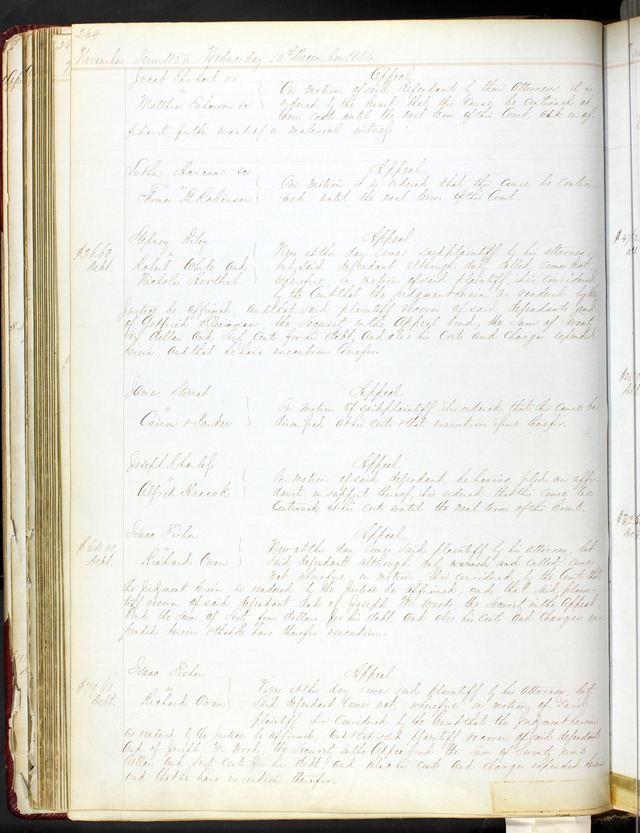 264
November Term 1856 Wednesday 10th December 1856
Jacob
vs Appeal
Matthias On motion of said defendant by their Attorneys it is
ordered by the Court that this cause be continued at
their costs until the next term of this Court, and on af-
fidavit, for the want of a material witness.
Appeal
vs On motion it is ordered that this cause be contin-
Thomas Robinson ued until the next term of this Court.
Stephney Riley Appeal
$26.60 Debt. vs Now at this day comes said plaintiff by his attorney,
Robert White and but said defendant although duly called comes not,
Nicholas wherefore, on motion of said plaintiff, it is considered
by the Court that the judgment herein as rendered by the
Justice be affirmed, and that said plaintiff recover of said defendants and
of Gottfried the security in the Appeal bond, the sum of Twenty
six dollars and sixty cents for his debt, and also his costs and charges expended
herein, and that he have execution therefor.
James Appeal
vs On motion of said plaintiff it is ordered that this cause be
Cairns & Parker dismissed at his costs & that execution issue therefor.
Joseph Appeal
vs On motion of said defendant he having filed an affi-
Alfred davit in support thereof, it is ordered that this cause be
Continued at his costs until the next term of this Court.
Isaac Fisher Appeal
Debt. vs Now at this day comes said plaintiff by his attorney, but
Richard Owen said defendant although duly and called comes
not, wherefore, on motion it is considered by the Court that
the judgment herein as rendered by the Justice be affirmed, and that said plain-
tiff recover of said defendant and of Joseph W. Wood, the security in the Appeal
bond the sum of Sixty four dollars for his debt and also his costs and charges ex-
pended herein & that he have therefor execution.
Isaac Fisher Appeal
Debt. vs Now at this day comes said plaintiff by his Attorney, but
Richard Owen said defendant comes not, wherefore, on motion of said
plaintiff it is considered by the Court that the Judgment herein
as rendered by the Justice be affirmed and that said plaintiff recover of said defendant
and of Joseph W. Wood, the security in the Appeal bond the sum of Seventy nine
dollars and sixty cents for his debt and also his costs and charges expended herein
and that he have execution therefor.